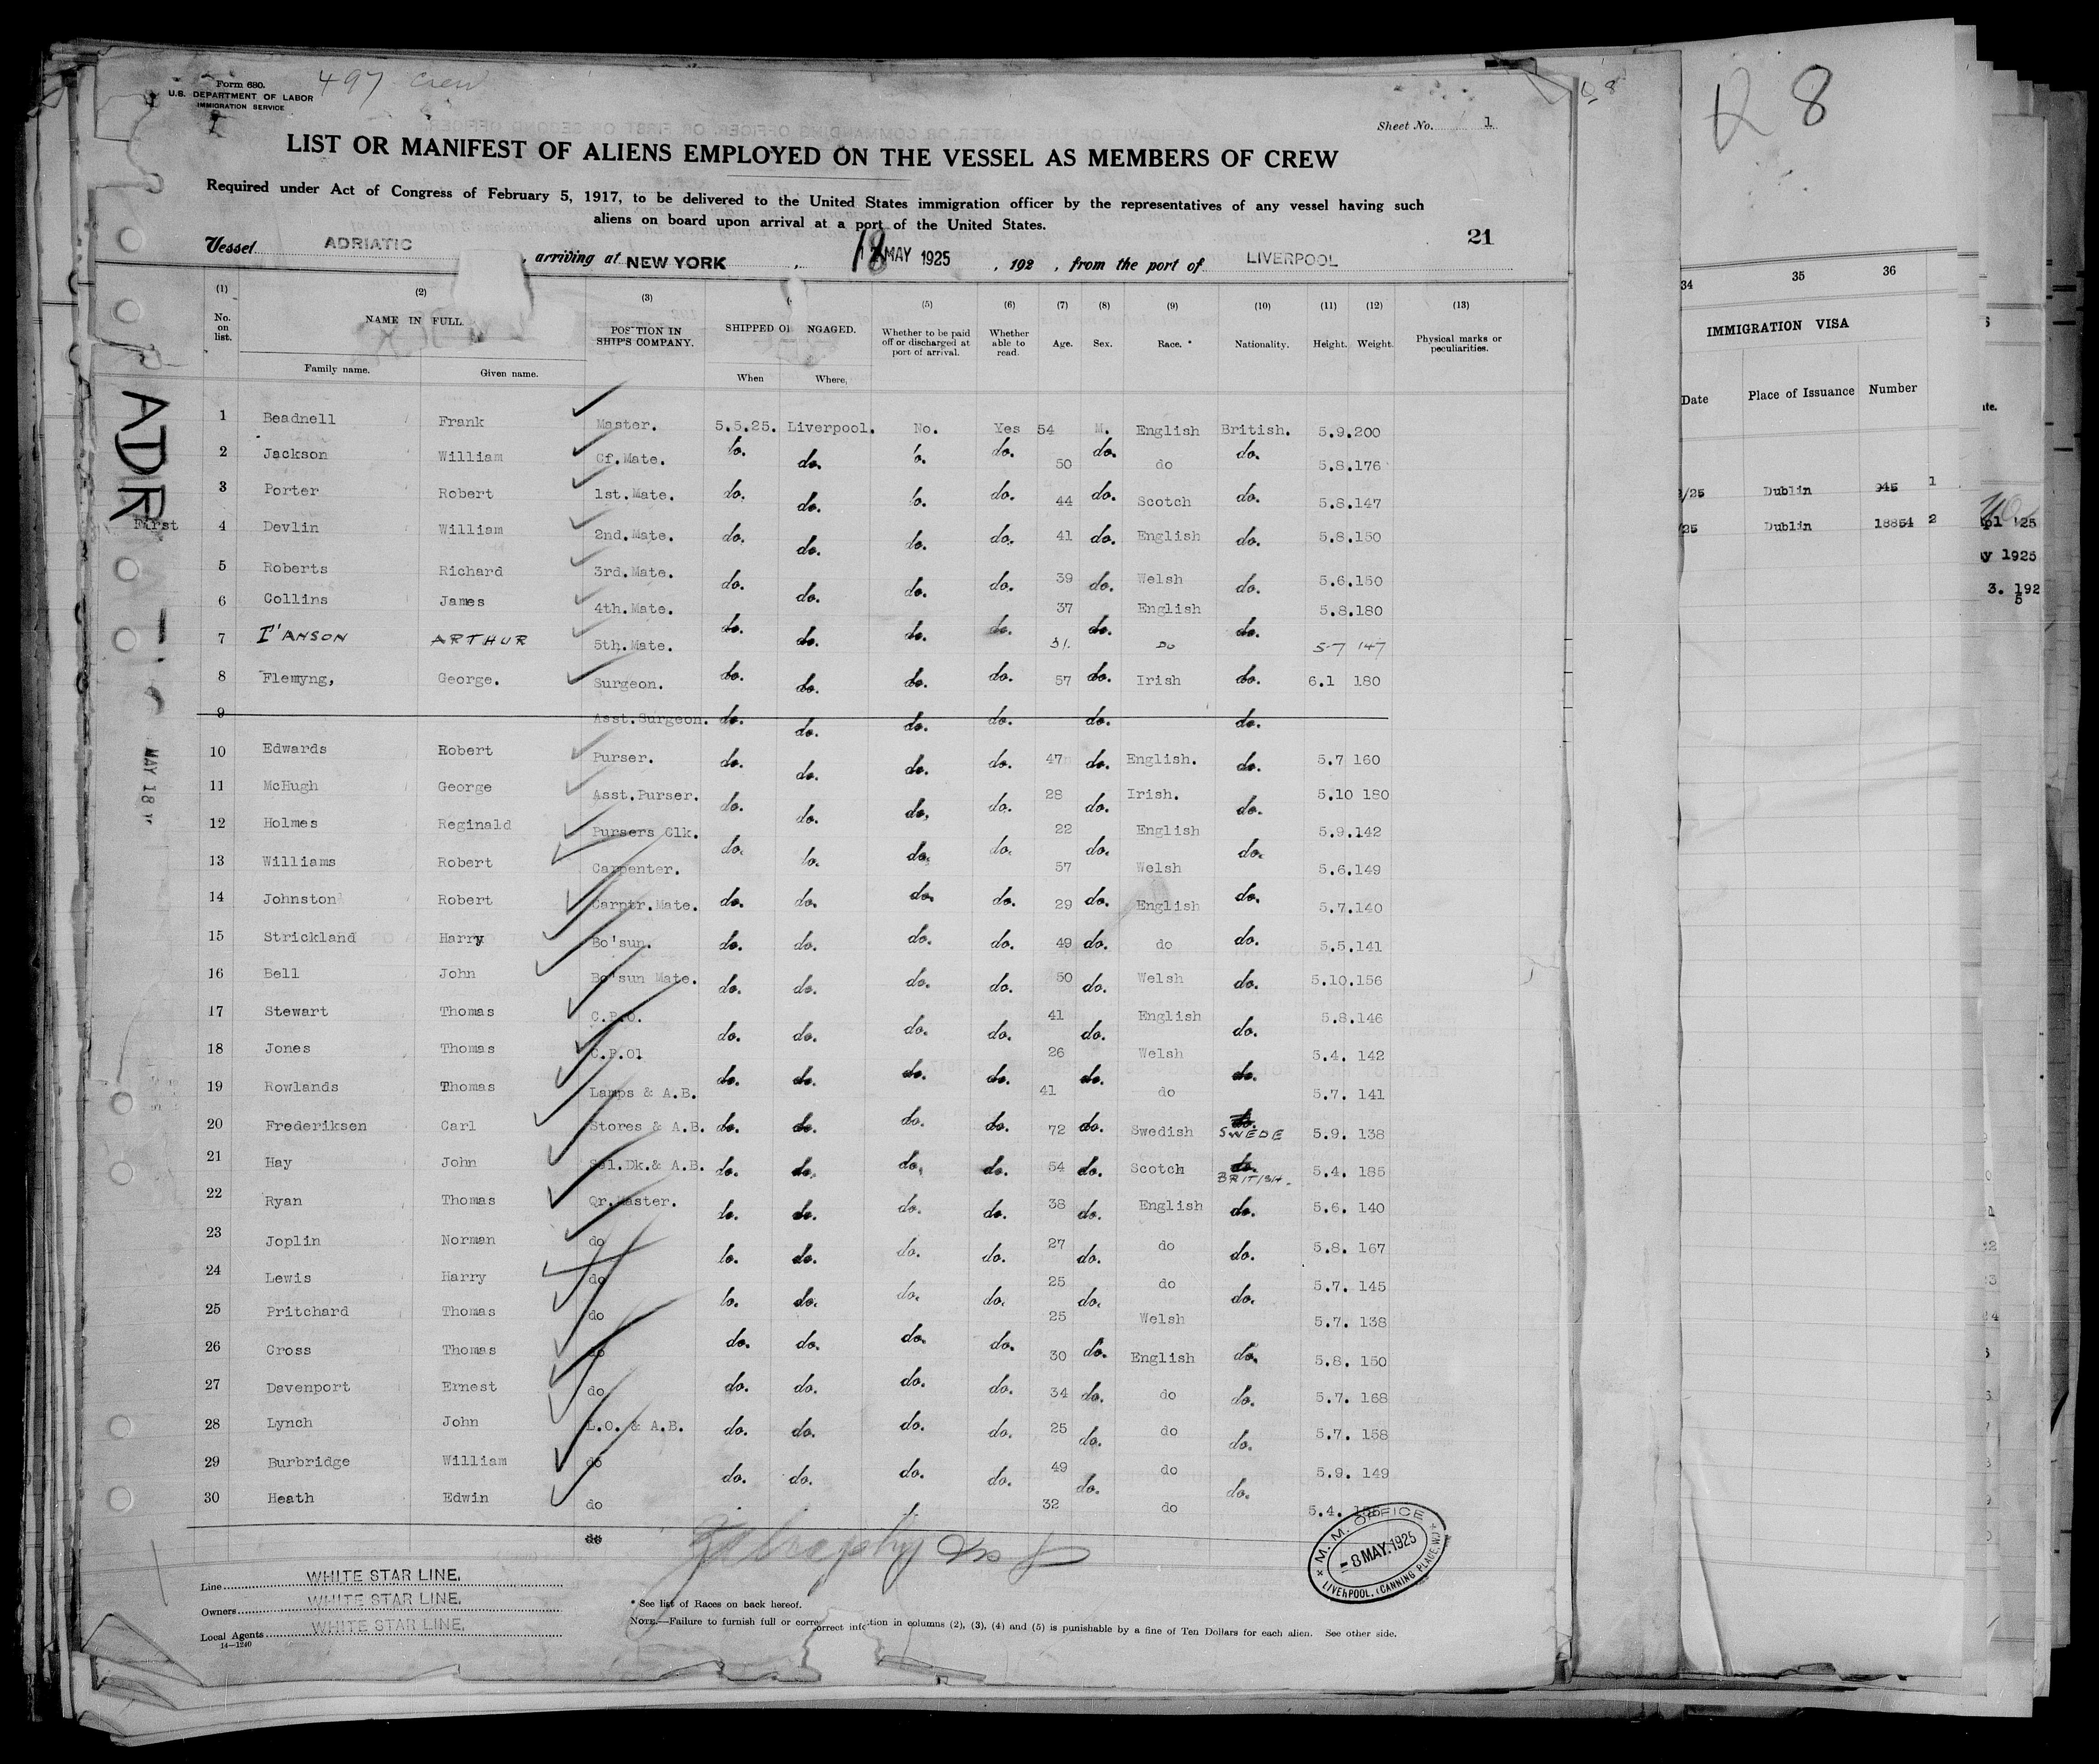 497 crew
Form 680.
U.S. DEPARTMENT OF LABOR
IMMIGRATION SERVICE
Sheet No. 1
LIST OR MANIFEST OF ALIENS EMPLOYED ON THE VESSEL AS MEMBERS OF CREW
Required under Act of Congress of February 5, 1917, to be delivered to the United States immigration officer by the representatives of any vessel having such
aliens on board upon arrival at a port of the United States.
21
Vessel ADRIATIC , arriving at NEW YORK , 18 MAY 1925 , 192 , from the port of LIVERPOOL
(1) (2) (3) (5) (6) (7) (8) (9) (10) (11) (12) (13)
No. on list. NAME IN FULL. POSITION IN SHIP'S COMPANY. SHIPPED O NGAGED. Whether to be paid off or discharged at port of arrival. Whether able to read. Age. Sex. Race. * Nationality. Height. Weight. Physical marks or peculiarities.
Family name. Given name. When Where,
1 Beadnell Frank Master. 5.5.25. Liverpool. No. Yes 54 M. English British. 5.9.200
2 Jackson William Cf.Mate. do. do. do. do. 50 do. do do. 5.8.176
3 Porter Robert 1st.Mate. do. do. do. do. 44 do. Scotch do. 5.8.147
4 Devlin William 2nd.Mate. do. do. do. do. 41 do. English do. 5.8.150
5 Roberts Richard 3rd.Mate. do. do. do. do. 39 do. Welsh do. 5.6.150
6 Collins James 4th.Mate. do. do. do. do. 37 do. English do. 5.8.180
7 I'ANSON ARTHUR 5th.Mate. 31. Do 5-7 147
8 Flemyng, George. Surgeon. do. do. do. do. 57 do. Irish do. 6.1 180
9 Asst.Surgeon. do. do. do. do. do. do.
10 Edwards Robert Purser. do. do. do. do. 47 do. English. do. 5.7 160
11 McHugh George Asst.Purser. do. do. do. do. 28 do. Irish. do. 5.10 180
12 Holmes Reginald Pursers Clk. do. do. do. do. 22 do. English do. 5.9.142
13 Williams Robert Carpenter. 57 Welsh 5.6.149
14 Johnston Robert Carptr.Mate. do. do. do. do. 29 do. English do. 5.7.140
15 Strickland Harry Bo'sun. do. do. do. do. 49 do. do do. 5.5.141
16 Bell John Bo'sun Mate. do. do. do. do. 50 do. Welsh do. 5.10.156
17 Stewart Thomas C.P.O. do. do. do. do. 41 do. English do. 5.8.146
18 Jones Thomas C.P.Ol do. do. do. do. 26 do. Welsh do. 5.4. 142
19 Rowlands Thomas Lamps & A.B. 41 do 5.7. 141
20 Frederiksen Carl Stores & A.B. do. do. do. do. 72 do. Swedish do. SWEDE 5.9. 138
21 Hay John Sl.Dk.& A.B. do. do. do. do. 54 do. Scotch do. BRITISH. 5.4. 185
22 Ryan Thomas Qr.Master. do. do. do. do. 38 do. English do. 5.6. 140
23 Joplin Norman do do. do. do. do. 27 do. do do. 5.8. 167
24 Lewis Harry do do. do. do. do. 25 do. do do. 5.7. 145
25 Pritchard Thomas do 25 Welsh 5.7. 138
26 Cross Thomas do do. do. do. do. 30 do. English do. 5.8. 150
27 Davenport Ernest do do. do. do. do. 34 do. do do. 5.7. 168
28 Lynch John L.O. & A.B. do. do. do. do. 25 do. do do. 5.7. 158
29 Burbridge William do do. do. do. do. 49 do. do do. 5.9. 149
30 Heath Edwin do 32 do 5.4.
do
M. M. OFFICE
- 8 MAY.1925
LIVERPOOL. (CANNING PLACE, W.)
Line WHITE STAR LINE.
Owners WHITE STAR LINE.
Local Agents WHITE STAR LINE.
14-1240
* See list of Races on back hereof.
NOTE.—Failure to furnish full or correct information in columns (2), (3), (4) and (5) is punishable by a fine of Ten Dollars for each alien. See other side.
ADR
First
MAY 18
R 8
34 35 36
IMMIGRATION VISA
Date Place of Issuance Number
/25 Dublin 945 1
/25 Dublin 18854 2
'25
y 1925
3. 192
5